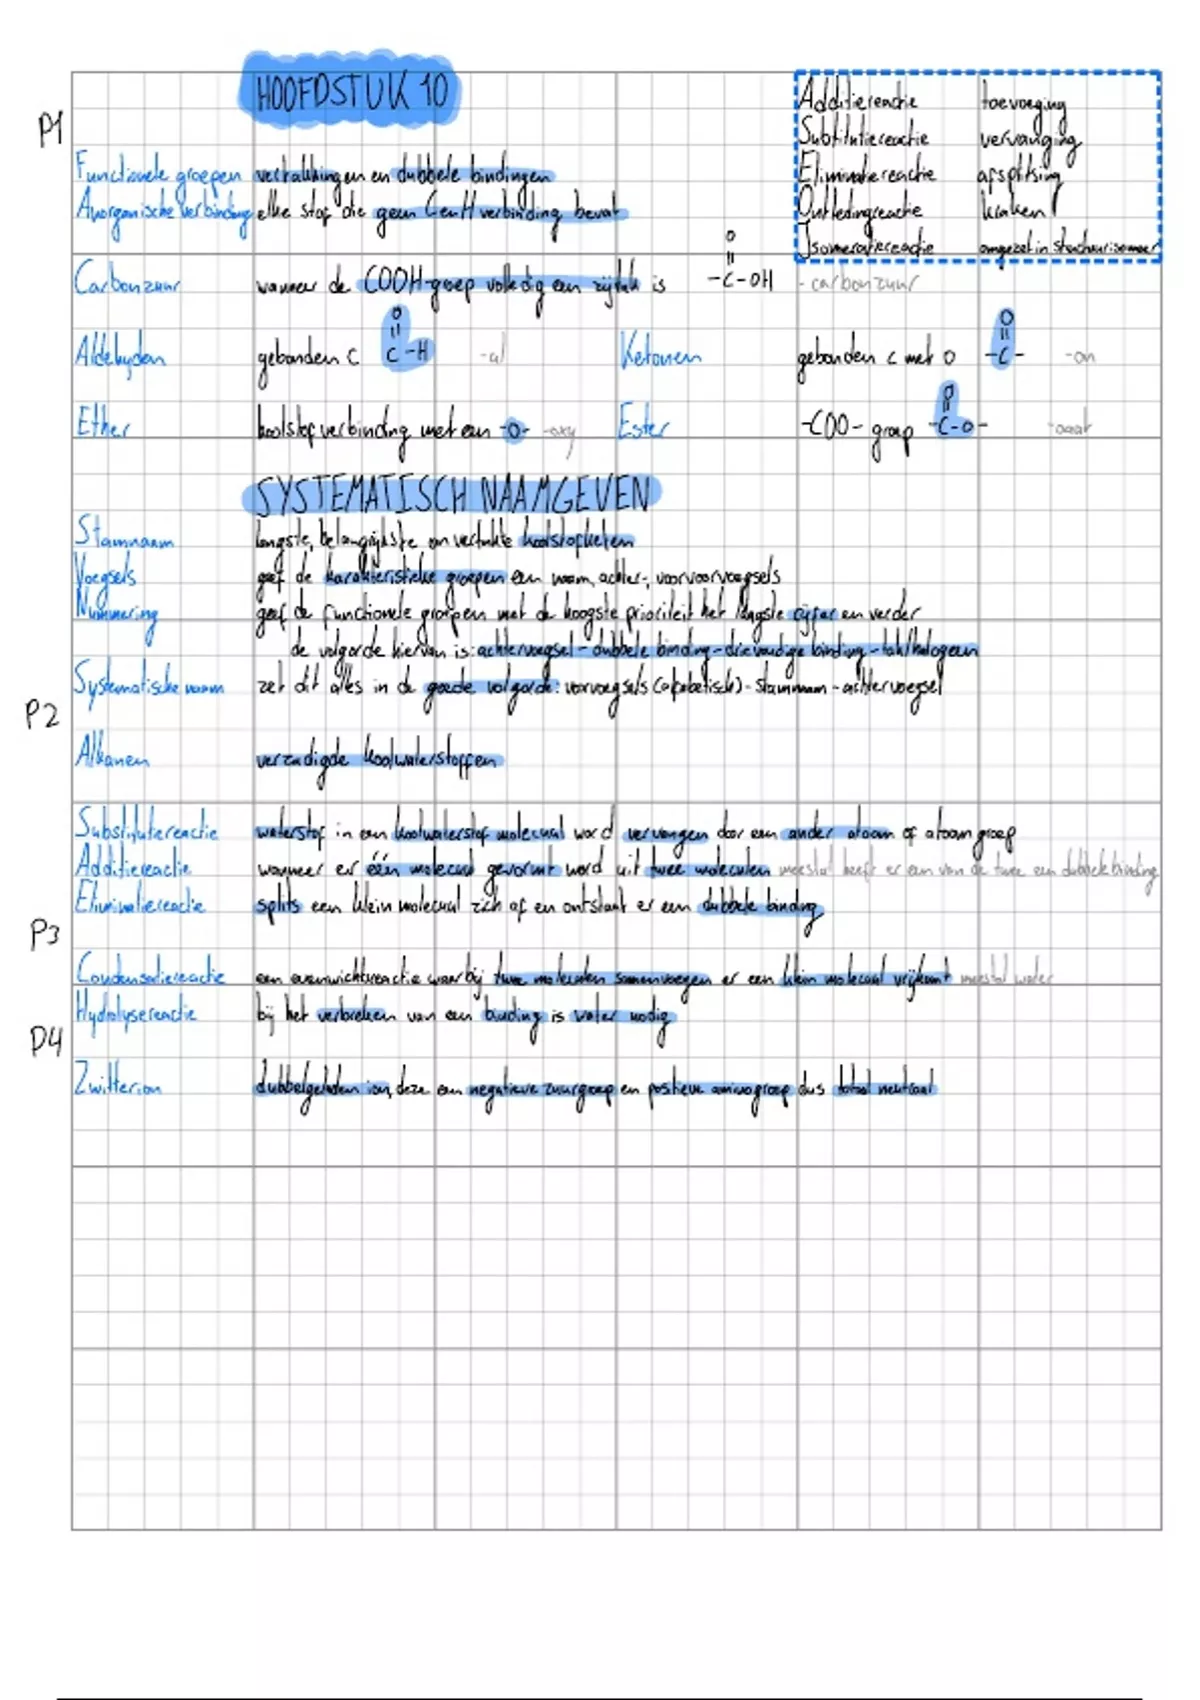 HOOFDSTUK 10
Additiereactie toevoeging
P1
Substitutiereactie vervanging
Functionele groepen vertakkingen en dubbele bindingen
Eliminatiereactie afsplitsing
Anorganische verbinding elke stof die geen C en H verbinding bevat
Ontledingreactie kraken
Isomeratiereactie omgezet in structuurisomeer
O
Carbonzuur wanneer de COOH-groep volledig een zijtak is -C-OH -carbonzuur
O O
Aldehyden gebonden C C-H -al Ketonen gebonden C met O -C- -on
O
Ether koolstofverbinding met een -O- -oxy Ester -COO- groep -C-O- -oaat
SYSTEMATISCH NAAMGEVEN
Stamnaam langste, belangrijkste on vertakte koolstofketen
Voegsels geef de karakteristieke groepen een naam, achter-, voorvoorvoegsels
Nummering geef de functionele groepen met de hoogste prioriteit het laagste cijfer en verder
de volgorde hiervan is: achtervoegsel - dubbele binding - drievoudige binding - tak/halogeen
Systematische naam zet dit alles in de goede volgorde: voorvoegsels (alfabetisch) - stamnaam - achtervoegsel
P2
Alkanen verzadigde koolwaterstoffen
Substitutiereactie waterstof in een koolwaterstof molecuul word vervangen door een ander atoom of atoomgroep
Additiereactie wanneer er één molecuul gevormt word uit twee moleculen meestal heeft er een van de twee een dubbele binding
Eliminatiereactie splits een klein molecuul zich af en ontstaat er een dubbele binding
P3
Condensatiereactie een evenwichtsreactie waarbij twee moleculen samenvoegen er een klein molecuul vrijkomt meestal water
Hydrolysereactie bij het verbreken van een binding is water nodig
P4
Zwitterion dubbelgeladen ion, deze een negatieve zuurgroep en positieve aminogroep dus totaal neutraal